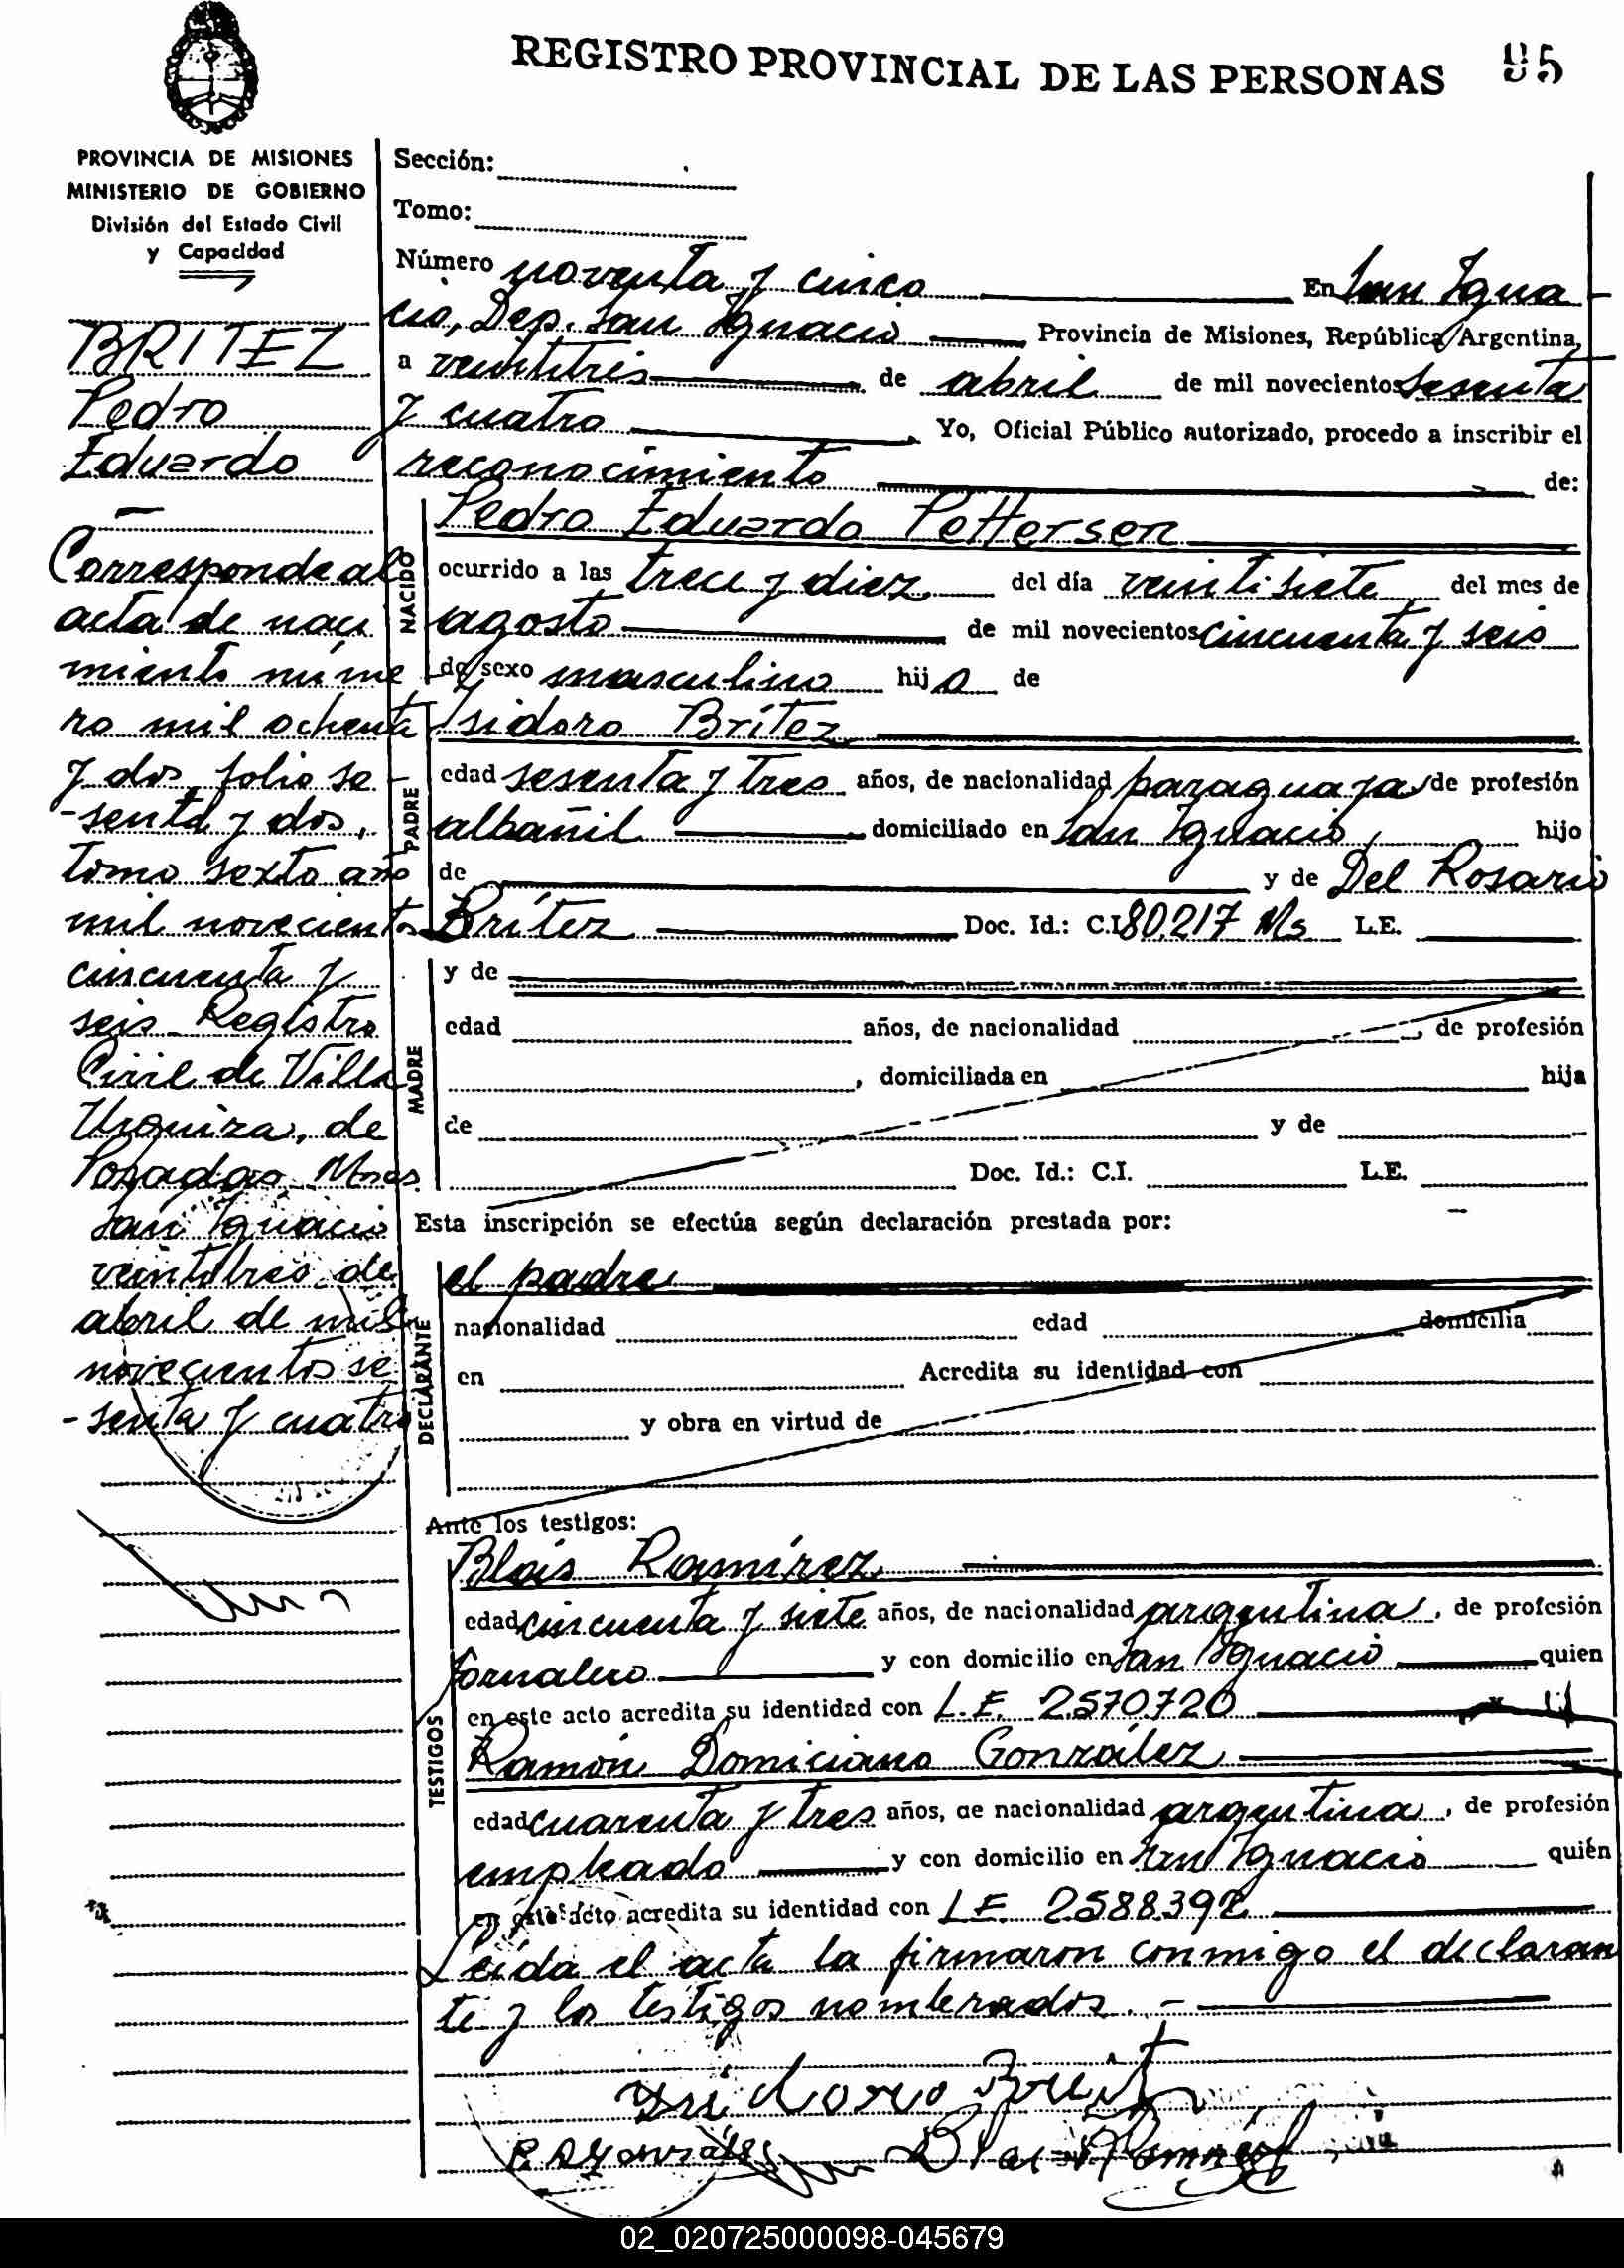 REGISTRO PROVINCIAL DE LAS PERSONAS 95
PROVINCIA DE MISIONES
MINISTERIO DE GOBIERNO
División del Estado Civil
y Capacidad
BRITEZ
Pedro
Eduardo
Corresponde al
acta de naci
miento núme
ro mil ochenta
y dos, folio se
-senta y dos,
tomo sexto año
mil novecientos
cincuenta y
seis Registro
Civil de Villa
Urquiza, de
Posadas Mnes.
San Ignacio
veintitres de
abril de mil
novecientos se
-senta y cuatro
Sección:
Tomo:
Número noventa y cinco En San Igna
cio, Dep. San Ignacio Provincia de Misiones, República Argentina,
a veintitrés de abril de mil novecientos sesenta
y cuatro Yo, Oficial Público autorizado, procedo a inscribir el
reconocimiento de:
NACIDO
Pedro Eduardo Pettersen
ocurrido a las trece y diez del día veintisiete del mes de
agosto de mil novecientos cincuenta y seis
de sexo masculino hijo de
PADRE
Isidoro Brítez
edad sesenta y tres años, de nacionalidad paraguaya de profesión
albañil domiciliado en San Ignacio, hijo
de y de Del Rosario
Brítez Doc. Id.: C.I. 80.217 Ms L.E.
MADRE
y de
edad años, de nacionalidad , de profesión
, domiciliada en hija
de y de
Doc. Id.: C.I. L.E.
Esta inscripción se efectúa según declaración prestada por:
DECLARANTE
el padre
nacionalidad edad domicilia
en Acredita su identidad con
y obra en virtud de
Ante los testigos:
TESTIGOS
Blás Ramírez
edad cincuenta y siete años, de nacionalidad argentina, de profesión
Jornalero y con domicilio en San Ignacio quien
en este acto acredita su identidad con L.E. 2.570.720
Ramón Domiciano González
edad cuarenta y tres años, de nacionalidad argentina, de profesión
empleado y con domicilio en San Ignacio quién
en este acto acredita su identidad con L.E. 2.588.392
Leída el acta la firmaron conmigo el declaran
te y los testigos nombrados. -
02_020725000098-045679